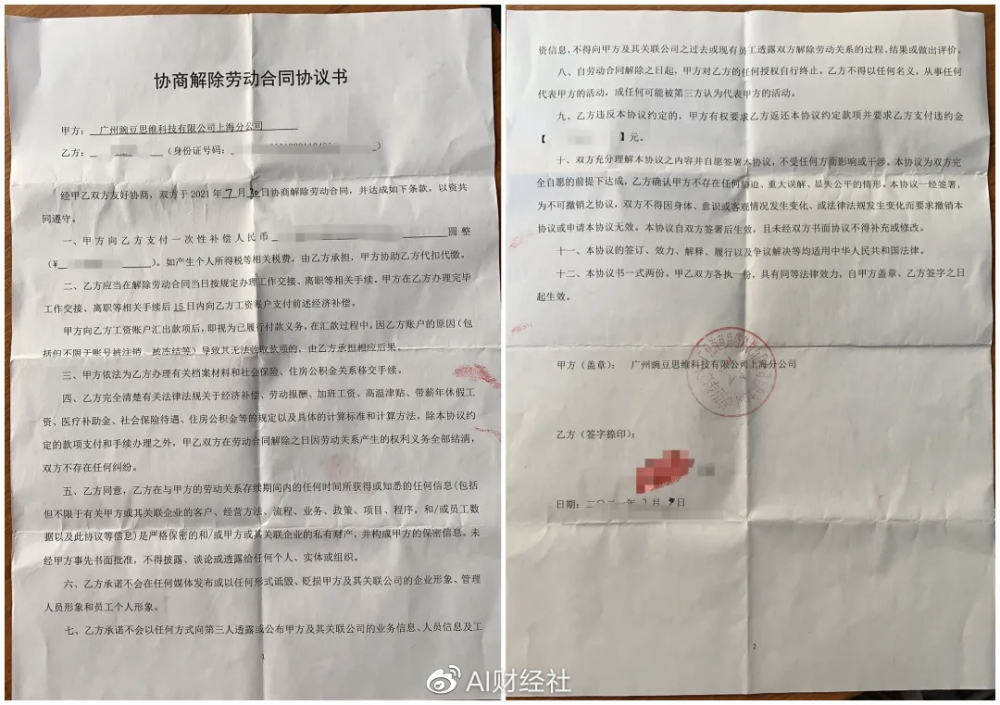 协商解除劳动合同协议书
甲方：广州豌豆思维科技有限公司上海分公司
乙方：（身份证号码：）
经甲乙双方友好协商，双方于 2021 年 7 月 30 日协商解除劳动合同，并达成如下条款，以资共
同遵守。
一、甲方向乙方支付一次性补偿人民币 圆整
（¥ ）。如产生个人所得税等相关税费，由乙方承担，甲方协助乙方代扣代缴。
二、乙方应当在解除劳动合同当日按规定办理工作交接、离职等相关手续。甲方在乙方办理完毕
工作交接、离职等相关手续后 15 日内向乙方工资账户支付前述经济补偿。
甲方向乙方工资账户汇出款项后，即视为已履行付款义务，在汇款过程中，因乙方账户的原因（包
括但不限于账号被注销、被冻结等）导致其无法收取款项的，由乙方承担相应后果。
三、甲方依法为乙方办理有关档案材料和社会保险、住房公积金关系移交手续。
四、乙方完全清楚有关法律法规关于经济补偿、劳动报酬、加班工资、高温津贴、带薪年休假工
资、医疗补助金、社会保险待遇、住房公积金等的规定以及具体的计算标准和计算方法。除本协议约
定的款项支付和手续办理之外，甲乙双方在劳动合同解除之日因劳动关系产生的权利义务全部结清，
双方不存在任何纠纷。
五、乙方同意，乙方在与甲方的劳动关系存续期间内的任何时间所获得或知悉的任何信息（包括
但不限于有关甲方或其关联企业的客户、经营方法、流程、业务、政策、项目、程序，和/或员工数
据以及此协议等信息）是严格保密的和/或甲方或其关联企业的私有财产，并构成甲方的保密信息。未
经甲方事先书面批准，不得披露、谈论或透露给任何个人、实体或组织。
六、乙方承诺不会在任何媒体发布或以任何形式诋毁、贬损甲方及其关联公司的企业形象、管理
人员形象和员工个人形象。
七、乙方承诺不会以任何方式向第三人透露或公布甲方及其关联公司的业务信息、人员信息及工
1
资信息，不得向甲方及其关联公司之过去或现有员工透露双方解除劳动关系的过程、结果或做出评价。
八、自劳动合同解除之日起，甲方对乙方的任何授权自行终止。乙方不得以任何名义，从事任何
代表甲方的活动，或任何可能被第三方认为代表甲方的活动。
九、乙方违反本协议约定的，甲方有权要求乙方返还本协议约定款项并要求乙方支付违约金
【 】元。
十、双方充分理解本协议之内容并自愿签署本协议，不受任何方面影响或干涉。本协议为双方完
全自愿的前提下达成，乙方确认甲方不存在任何胁迫、重大误解、显失公平的情形。本协议一经签署，
为不可撤销之协议，双方不得因身体、意识或客观情况发生变化、或法律法规发生变化而要求撤销本
协议或申请本协议无效。本协议自双方签署后生效，且未经双方书面协议不得补充或修改。
十一、本协议的签订、效力、解释、履行以及争议解决等均适用中华人民共和国法律。
十二、本协议书一式两份，甲乙双方各执一份，具有同等法律效力，自甲方盖章、乙方签字之日
起生效。
甲方（盖章）：广州豌豆思维科技有限公司上海分公司
乙方（签字捺印）：
日期：二〇二一年 月 日
2
AI财经社